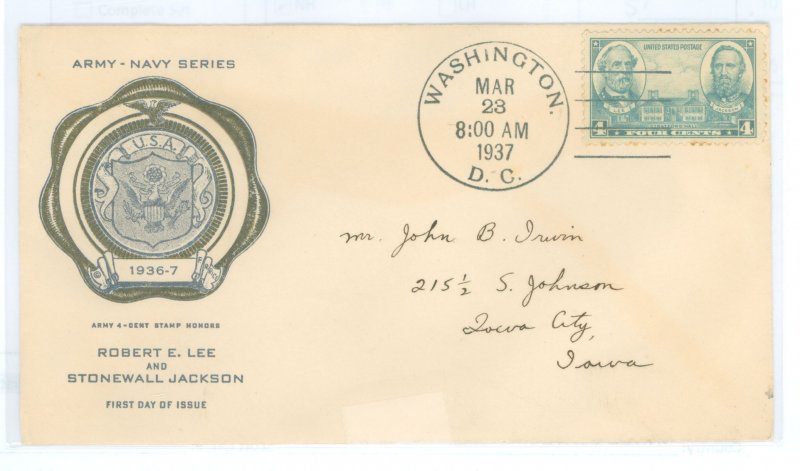 ARMY - NAVY SERIES
U.S.A.
1936-7
ARMY 4-CENT STAMP HONORS
ROBERT E. LEE
AND
STONEWALL JACKSON
FIRST DAY OF ISSUE
WASHINGTON.
MAR
23
8:00 AM
1937
D. C.
UNITED STATES POSTAGE
LEE
JACKSON
4 FOUR CENTS 4
Mr. John B. Irwin
215½ S. Johnson
Iowa City,
Iowa